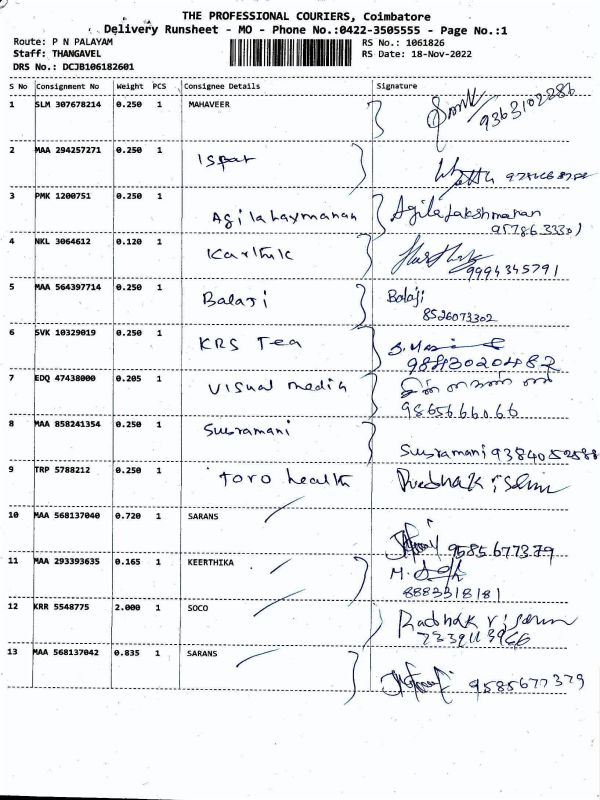 THE PROFESSIONAL COURIERS, Coimbatore
Delivery Runsheet - MO - Phone No.:0422-3505555 - Page No.:1
Route: P N PALAYAM
Staff: THANGAVEL
DRS No.: DCJB106182601
RS No.: 1061826
RS Date: 18-Nov-2022
S No Consignment No Weight PCS Consignee Details Signature
1 SLM 307678214 0.250 1 MAHAVEER
9363102286
2 MAA 294257271 0.250 1 Ispat
3 PMK 1200751 0.250 1 Agilalaxmanan Agilalakshmanan
4 NKL 3064612 0.120 1 Karthik
9994345791
5 MAA 564397714 0.250 1 Balaji Balaji
8526073302
6 SVK 10329019 0.250 1 KRS Tea
7 EDQ 47438000 0.205 1 Visual media
9865666066
8 MAA 858241354 0.250 1 Subramani
Subramani 9384052588
9 TRP 5788212 0.250 1 Toro health
10 MAA 568137040 0.720 1 SARANS
9585677379
11 MAA 293393635 0.165 1 KEERTHIKA
8883318181
12 KRR 5548775 2.000 1 SOCO
13 MAA 568137042 0.835 1 SARANS
9585677379